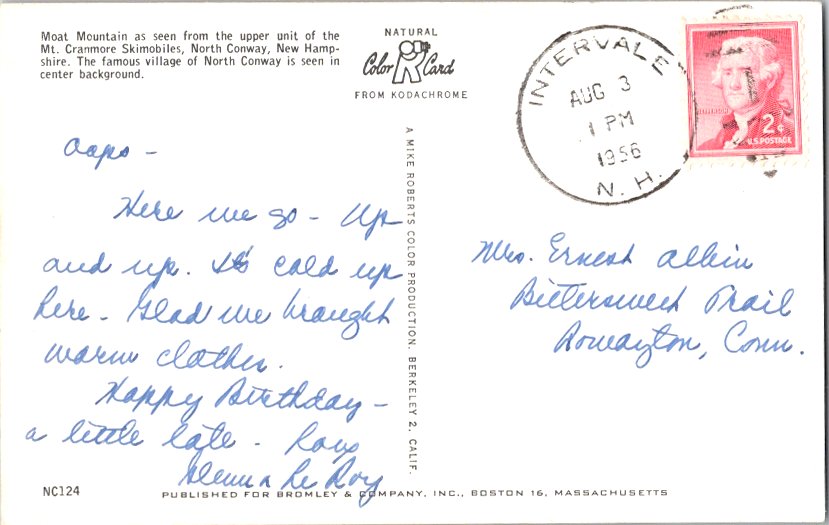 Moat Mountain as seen from the upper unit of the
Mt. Cranmore Skimobiles, North Conway, New Hamp-
shire. The famous village of North Conway is seen in
center background.
NATURAL
Color Card
FROM KODACHROME
INTERVALE
AUG 3
1 PM
1956
N. H.
JEFFERSON
2¢
U.S. POSTAGE
Oops -
Here we go - Up
and up. It's cold up
here - Glad we brought
warm clothes.
Happy Birthday -
a little late - Love
Glenn & Le Roy
A MIKE ROBERTS COLOR PRODUCTION, BERKELEY 2, CALIF.
Mrs. Ernest Albin
Bittersweet Trail
Rowayton, Conn.
NC124
PUBLISHED FOR BROMLEY & COMPANY, INC., BOSTON 16, MASSACHUSETTS